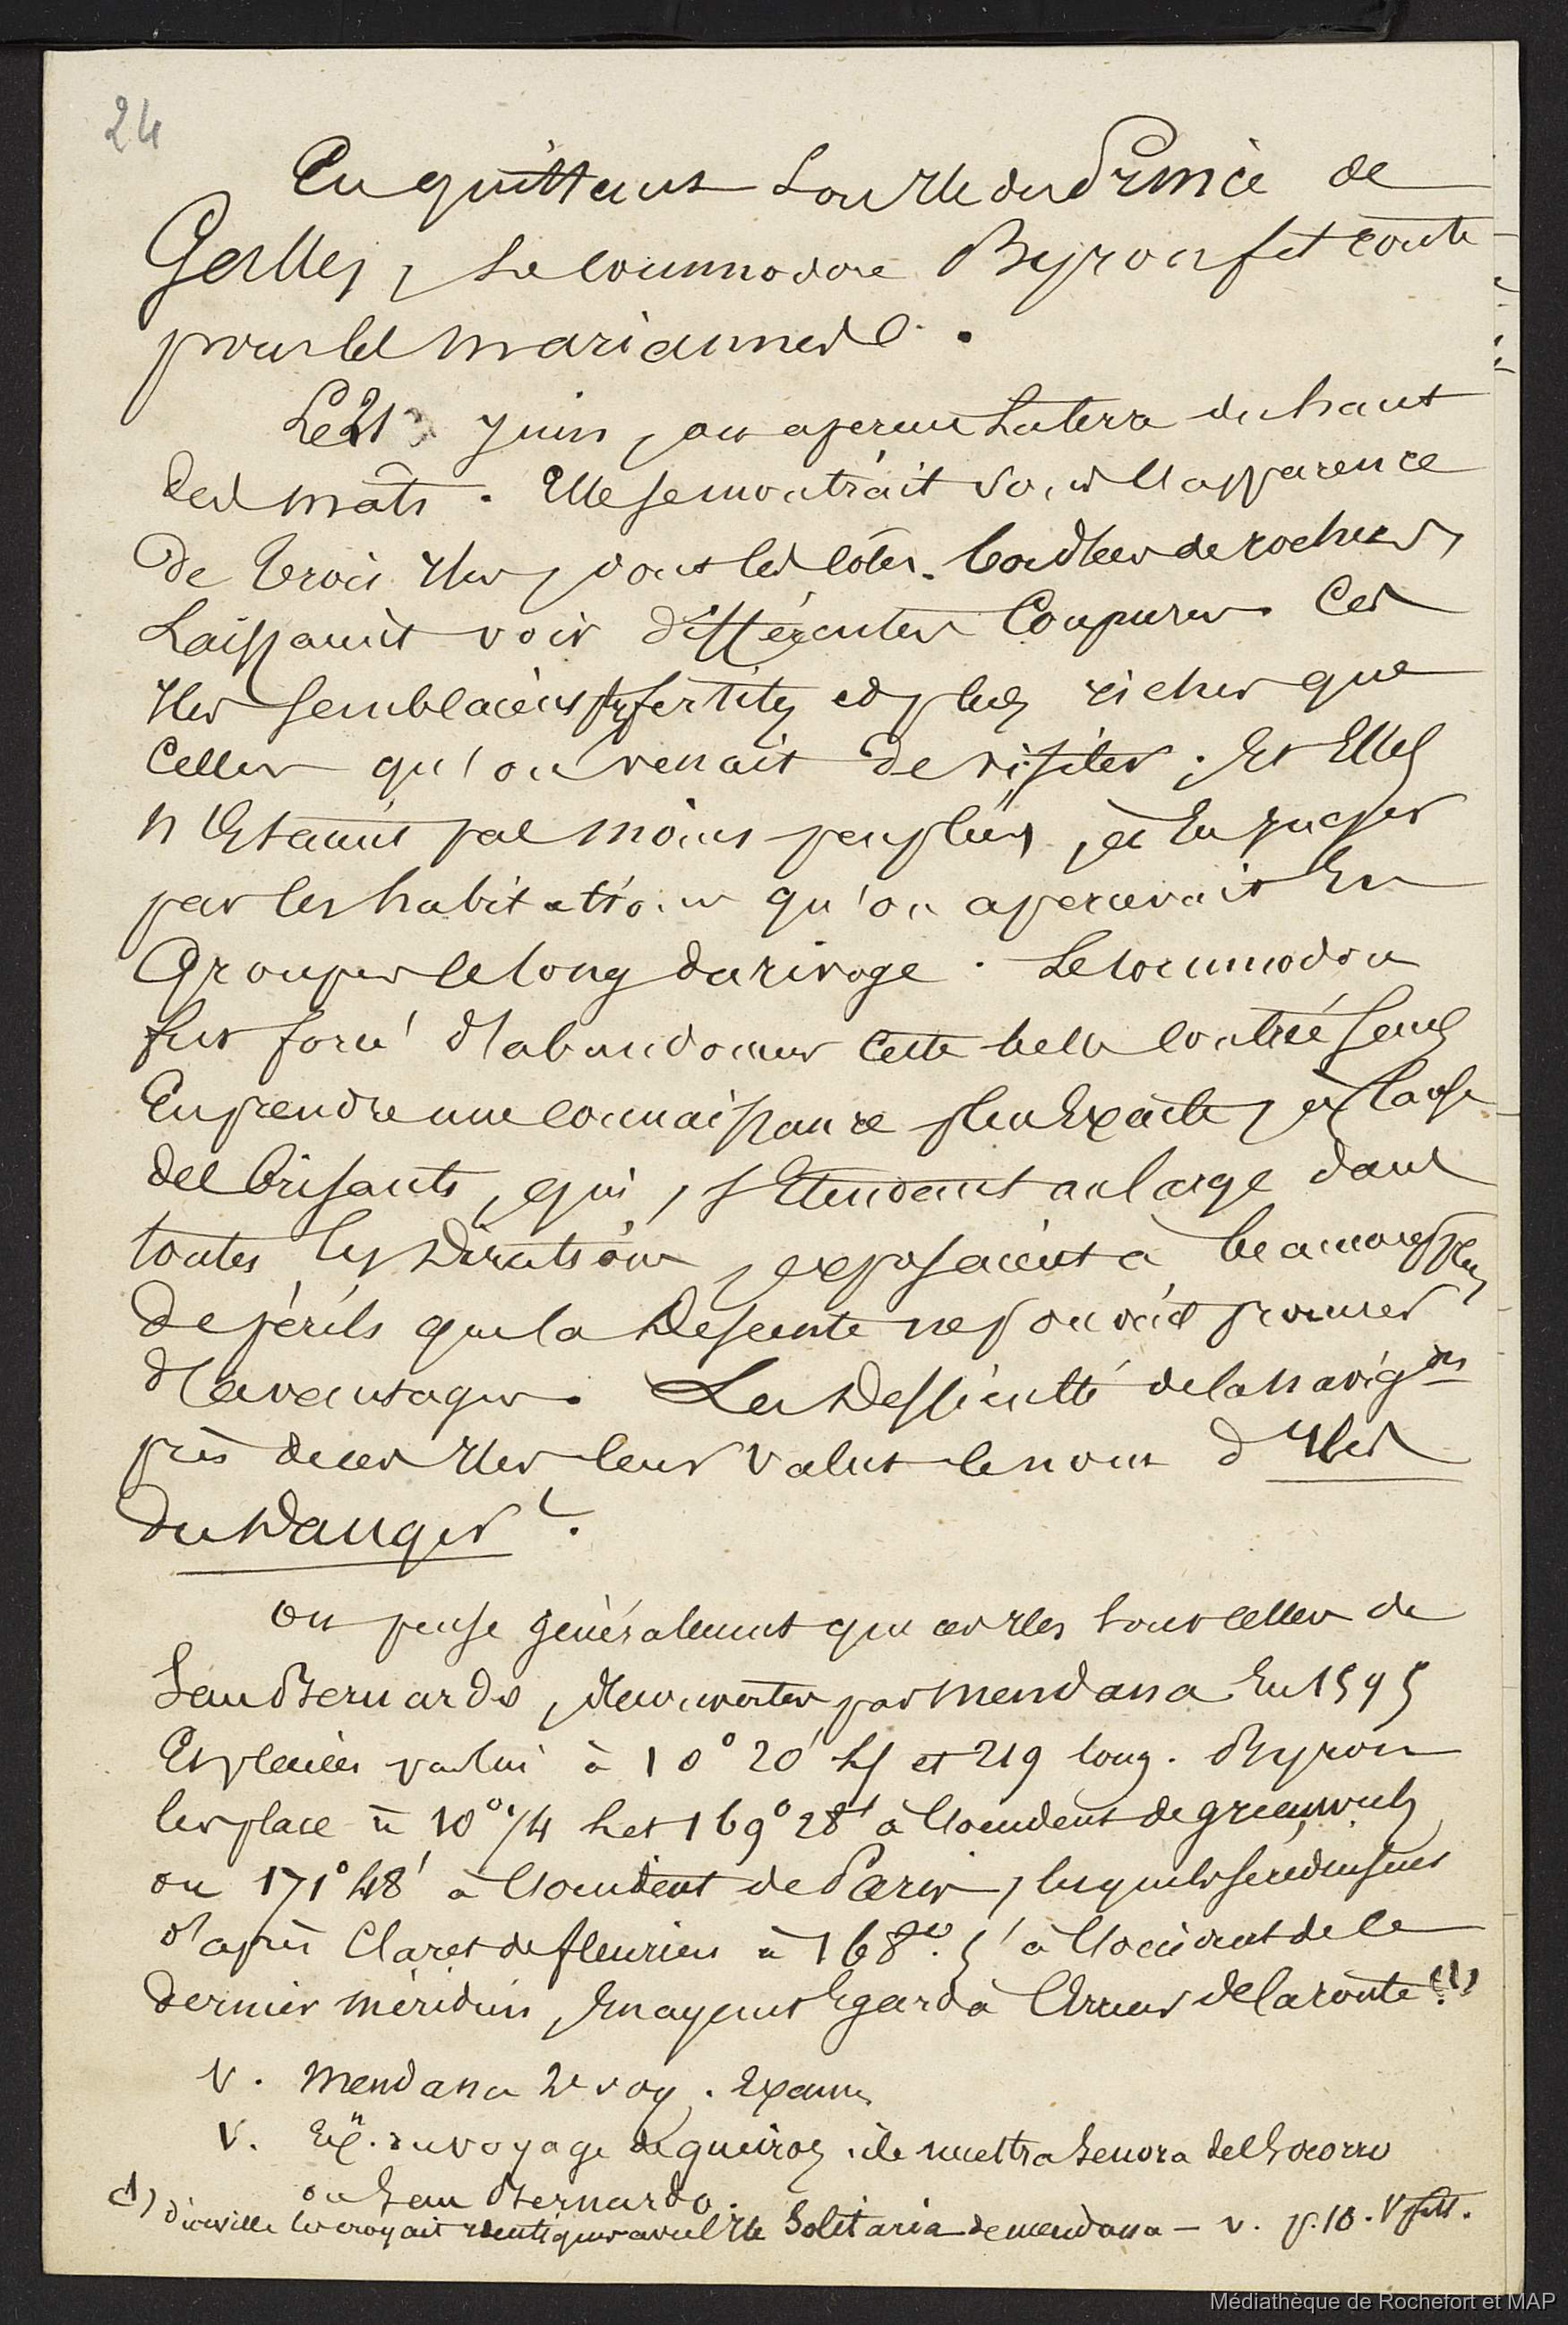 24
En quittant son Ile du Prince de
Galles, le commodore Byron fit route
pour les mariannes.
Le 21 juin, on aperçut la terre du haut
des mâts. Elle se montrait sous l'apparence
de trois Iles, dont les côtes bordées de rochers,
Laissaient voir différentes Coupures. Ces
Iles semblaient fertiles et plus riches que
Celles qu'on venait de visiter ; Et Elles
n'Etaient pas moins peuplées, à En juger
par les habitations qu'on apercevait En
Groupes le long du rivage. Le commodore
fut forcé d'abandonner cette belle contrée sans
En prendre une connaissance plus Exacte, à cause
des brisants, qui, s'Etendant au large dans
toutes les directions, exposaient à beaucoup plus
de périls que la descente ne pouvait procurer
d'avantages. La difficulté de la navig on
près de ces Iles leur valut le nom d'Iles
du Danger.
on pense généralement que ces Iles sont celles de
San Bernardo, découvertes par Mendana En 1595
Et placées par lui à 10° 20' LS et 219 long. Byron
les place à 10° 1/4 L et 169° 28' à l'occident de greenwich
ou 171° 48' à l'occident de Paris, lesquels se réduisent
d'après Claret de fleurieu à 168°. 5' à l'occident de ce
dernier méridien, En ayant Egard à l'Erreur de la route. (1)
V. Mendana 2e voy. Examen
V. Ex. du voyage de queiros. ile nuestra Senora del Socorro
ou San Bernardo.
(1) d'urville les croyait identiques avec l'Ile Solitaria de mendana - v. p. 10.
Médiathèque de Rochefort et MAP